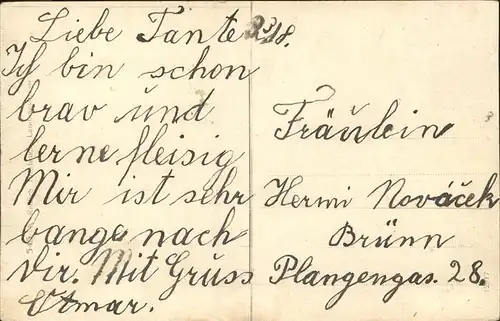 Liebe Tante
Ich bin schon
brav und
lerne fleisig
Mir ist sehr
bange nach
Dir. Mit Gruss
Otmar.
Fräulein
Hermi Nováček
Brünn
Plangengas. 28.